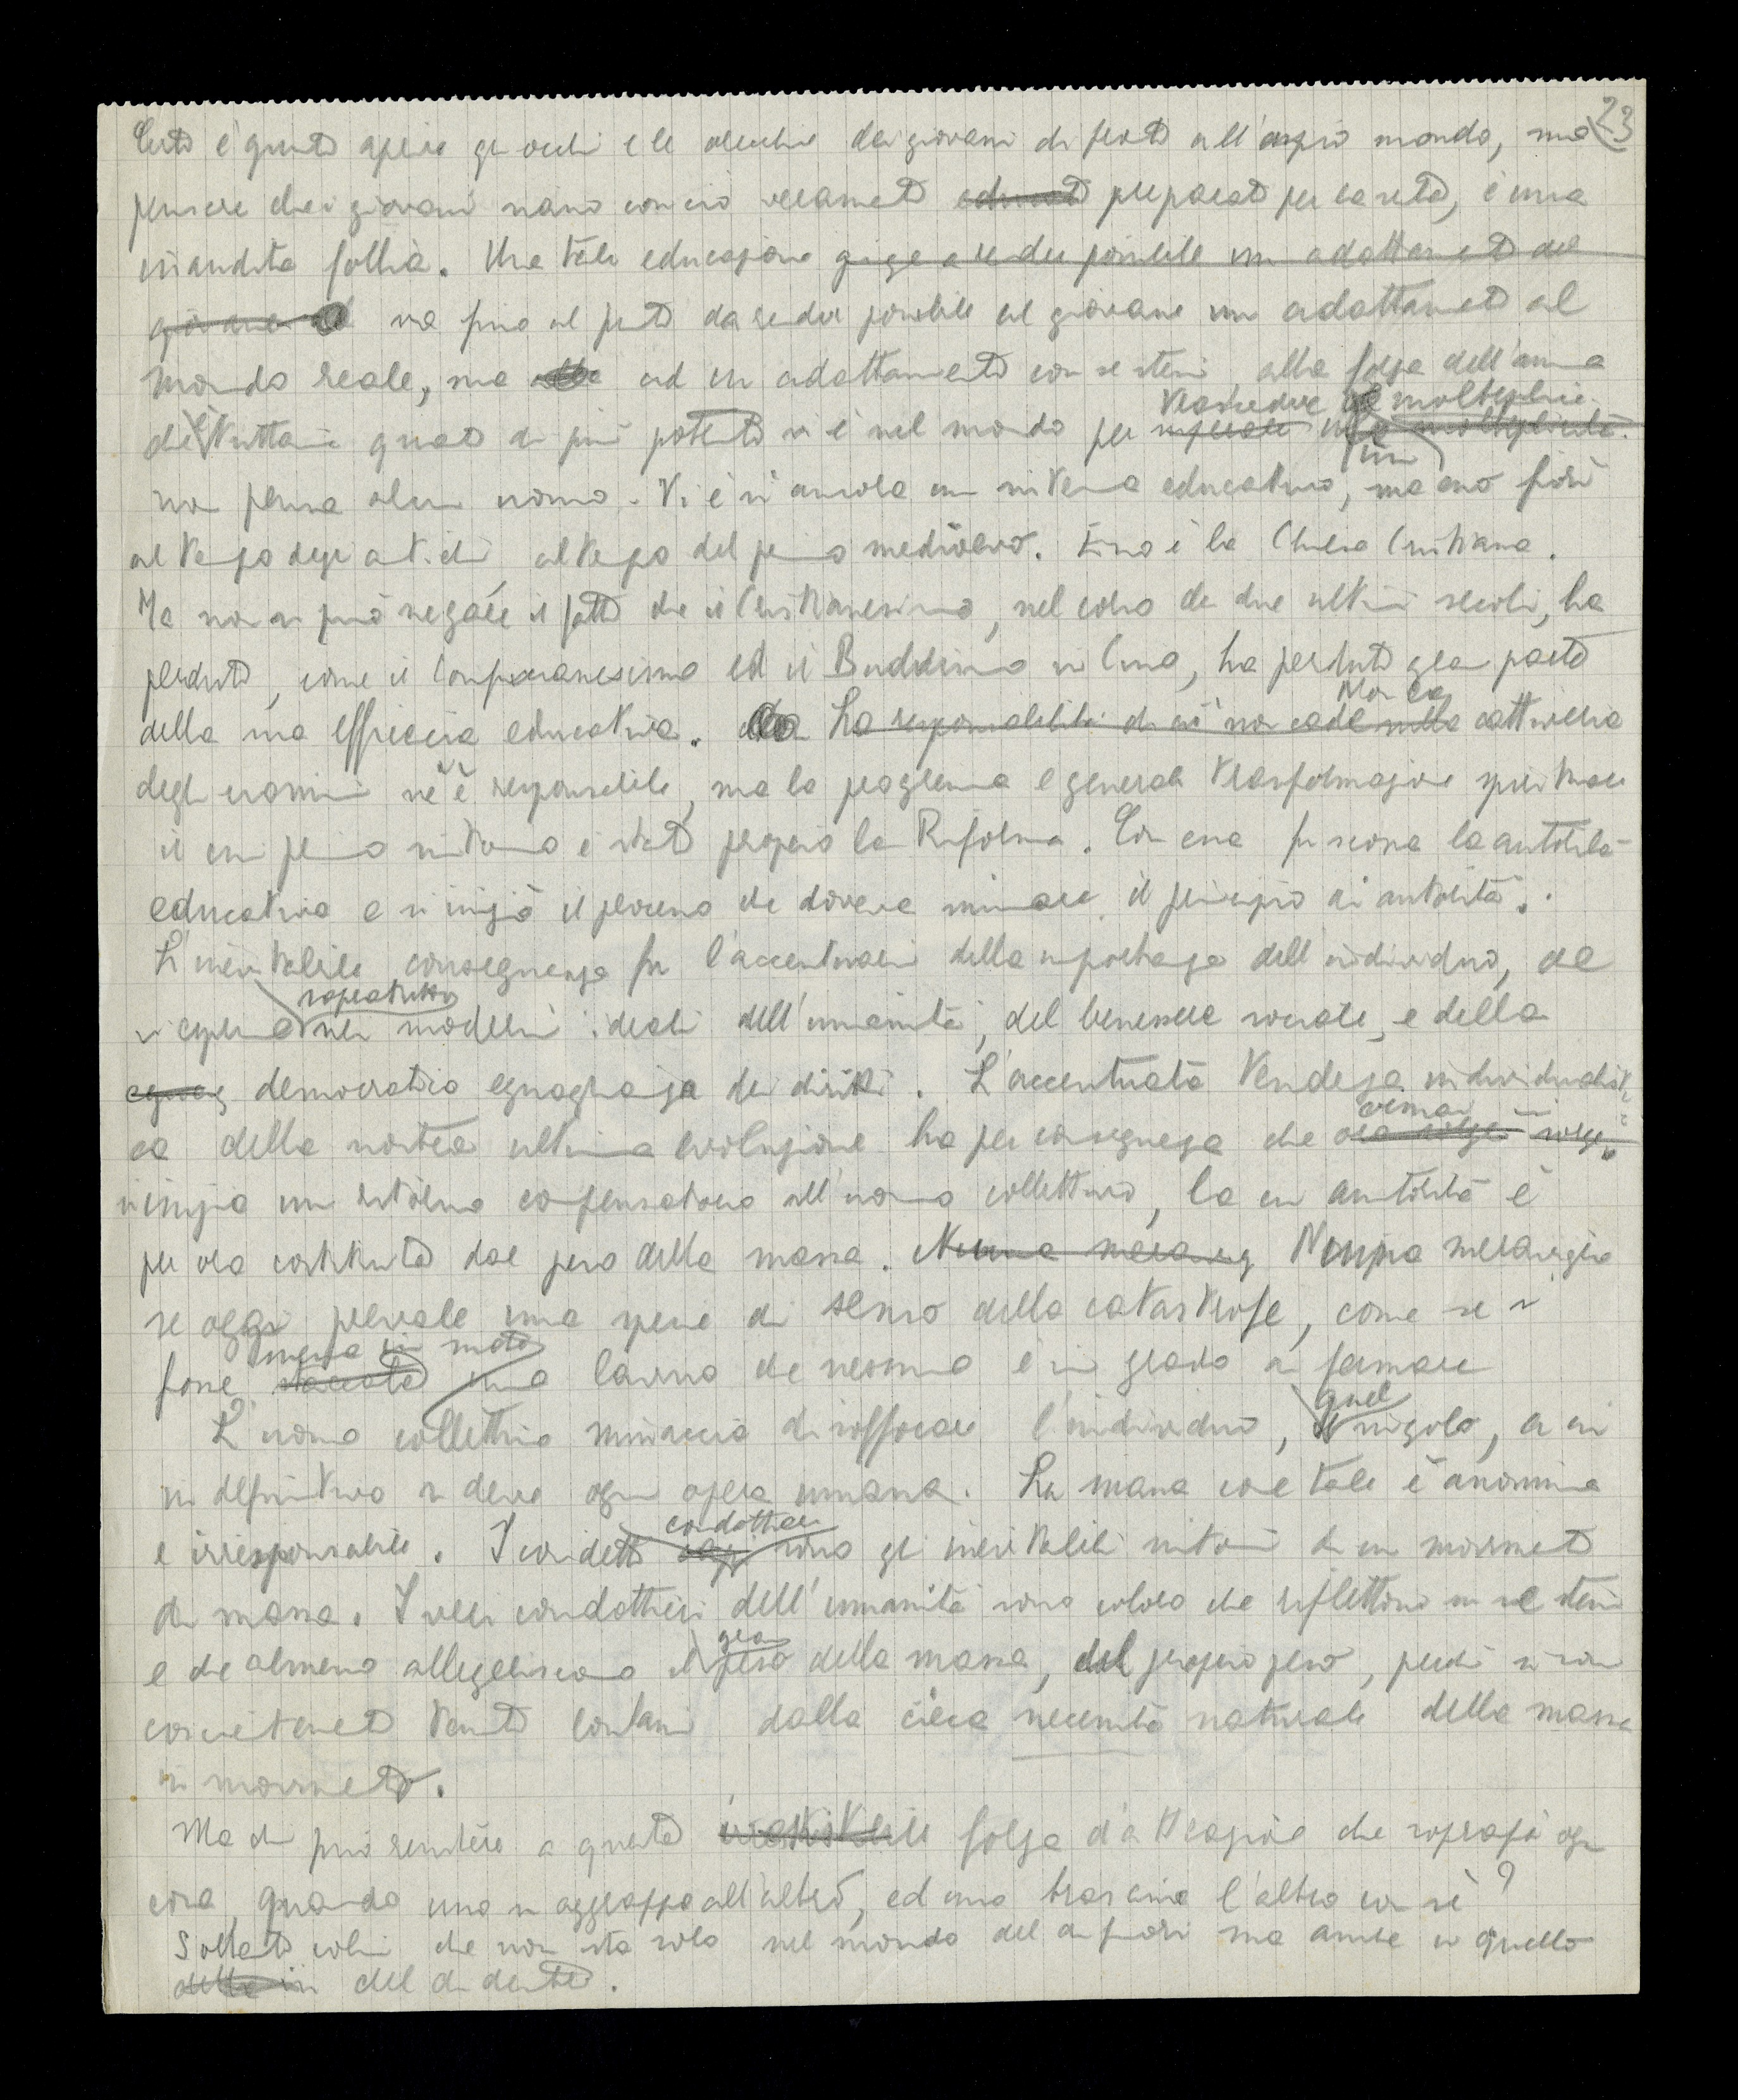 23
Certo è giusto aprire gli occhi e le orecchie dei giovani di fronte all'ampio mondo, ma
pensare che i giovani siano con ciò veramente educati preparati per la vita, è una
inaudita follia. Una tale educazione giunge a render possibile un adattamento del
giovane al va fino al punto da render possibile al giovane un adattamento al
mondo reale, ma alla ad un adattamento con se stessi, alla forza dell'anima
trasfondere molteplice
che tuttavia quanto di più potente vi è nel mondo per molteplicità.
un
non pensa alcun uomo. Vi è sì ancora un sistema educativo, ma esso fiorì
al tempo degli antichi al tempo del primo medioevo. Esso è la Chiesa Cristiana.
Ma non si può negare il fatto che il Cristianesimo, nel corso dei due ultimi secoli, ha
perduto, come il Confucianesimo ed il Buddismo in Cina, ha perduto gran parte
Non la
della sua efficacia educativa. La responsabilità di ciò non cade nella cattiveria
degli uomini ne è responsabile, ma la progressiva e generale trasformazione spirituale
il cui primo sintomo è stato proprio la Riforma. Con essa fu scossa la autorità
educativa e si iniziò il processo che doveva minare il principio di autorità.
L'inevitabile conseguenza fu l'accentuarsi della importanza dell'individuo, che
soprattutto
si esprime nei moderni ideali dell'umanità, del benessere sociale, e della
eguag democratica eguaglianza dei diritti. L'accentuata tendenza individualisti
ormai
ca della nostra ultima evoluzione ha per conseguenza che ora sorge sorge
si inizia un ritorno compensatorio all'uomo collettivo, la cui autorità è
per ora costituita dal peso della massa. Nessuna meravig Nessuna meraviglia
se oggi prevale una specie di senso della catastrofe, come se si
messa in moto
fosse staccata una lavina che nessuno è in grado di fermare
quel
L'uomo collettivo minaccia di soffocare l'individuo, il singolo, a cui
in definitiva si deve ogni opera umana. La massa come tale è anonima
condottieri
e irresponsabile. I cosidetti capi sono gli inevitabili sintomi di un movimento
di massa. I veri condottieri dell'umanità sono coloro che riflettono su se stessi
gran
e che almeno alleggeriscono il peso della massa, del proprio peso, perché si son
coscientemente tenuti lontani dalla cieca necessità naturale della massa
in movimento.
Ma chi può resistere a questa irresistibile forza d'attrazione che sopraffà ogni
cosa, quando uno si aggrappa all'altro, ed uno trascina l'altro con sè?
Soltanto colui che non sta solo nel mondo del di fuori ma anche in quello
della in del di dentro.